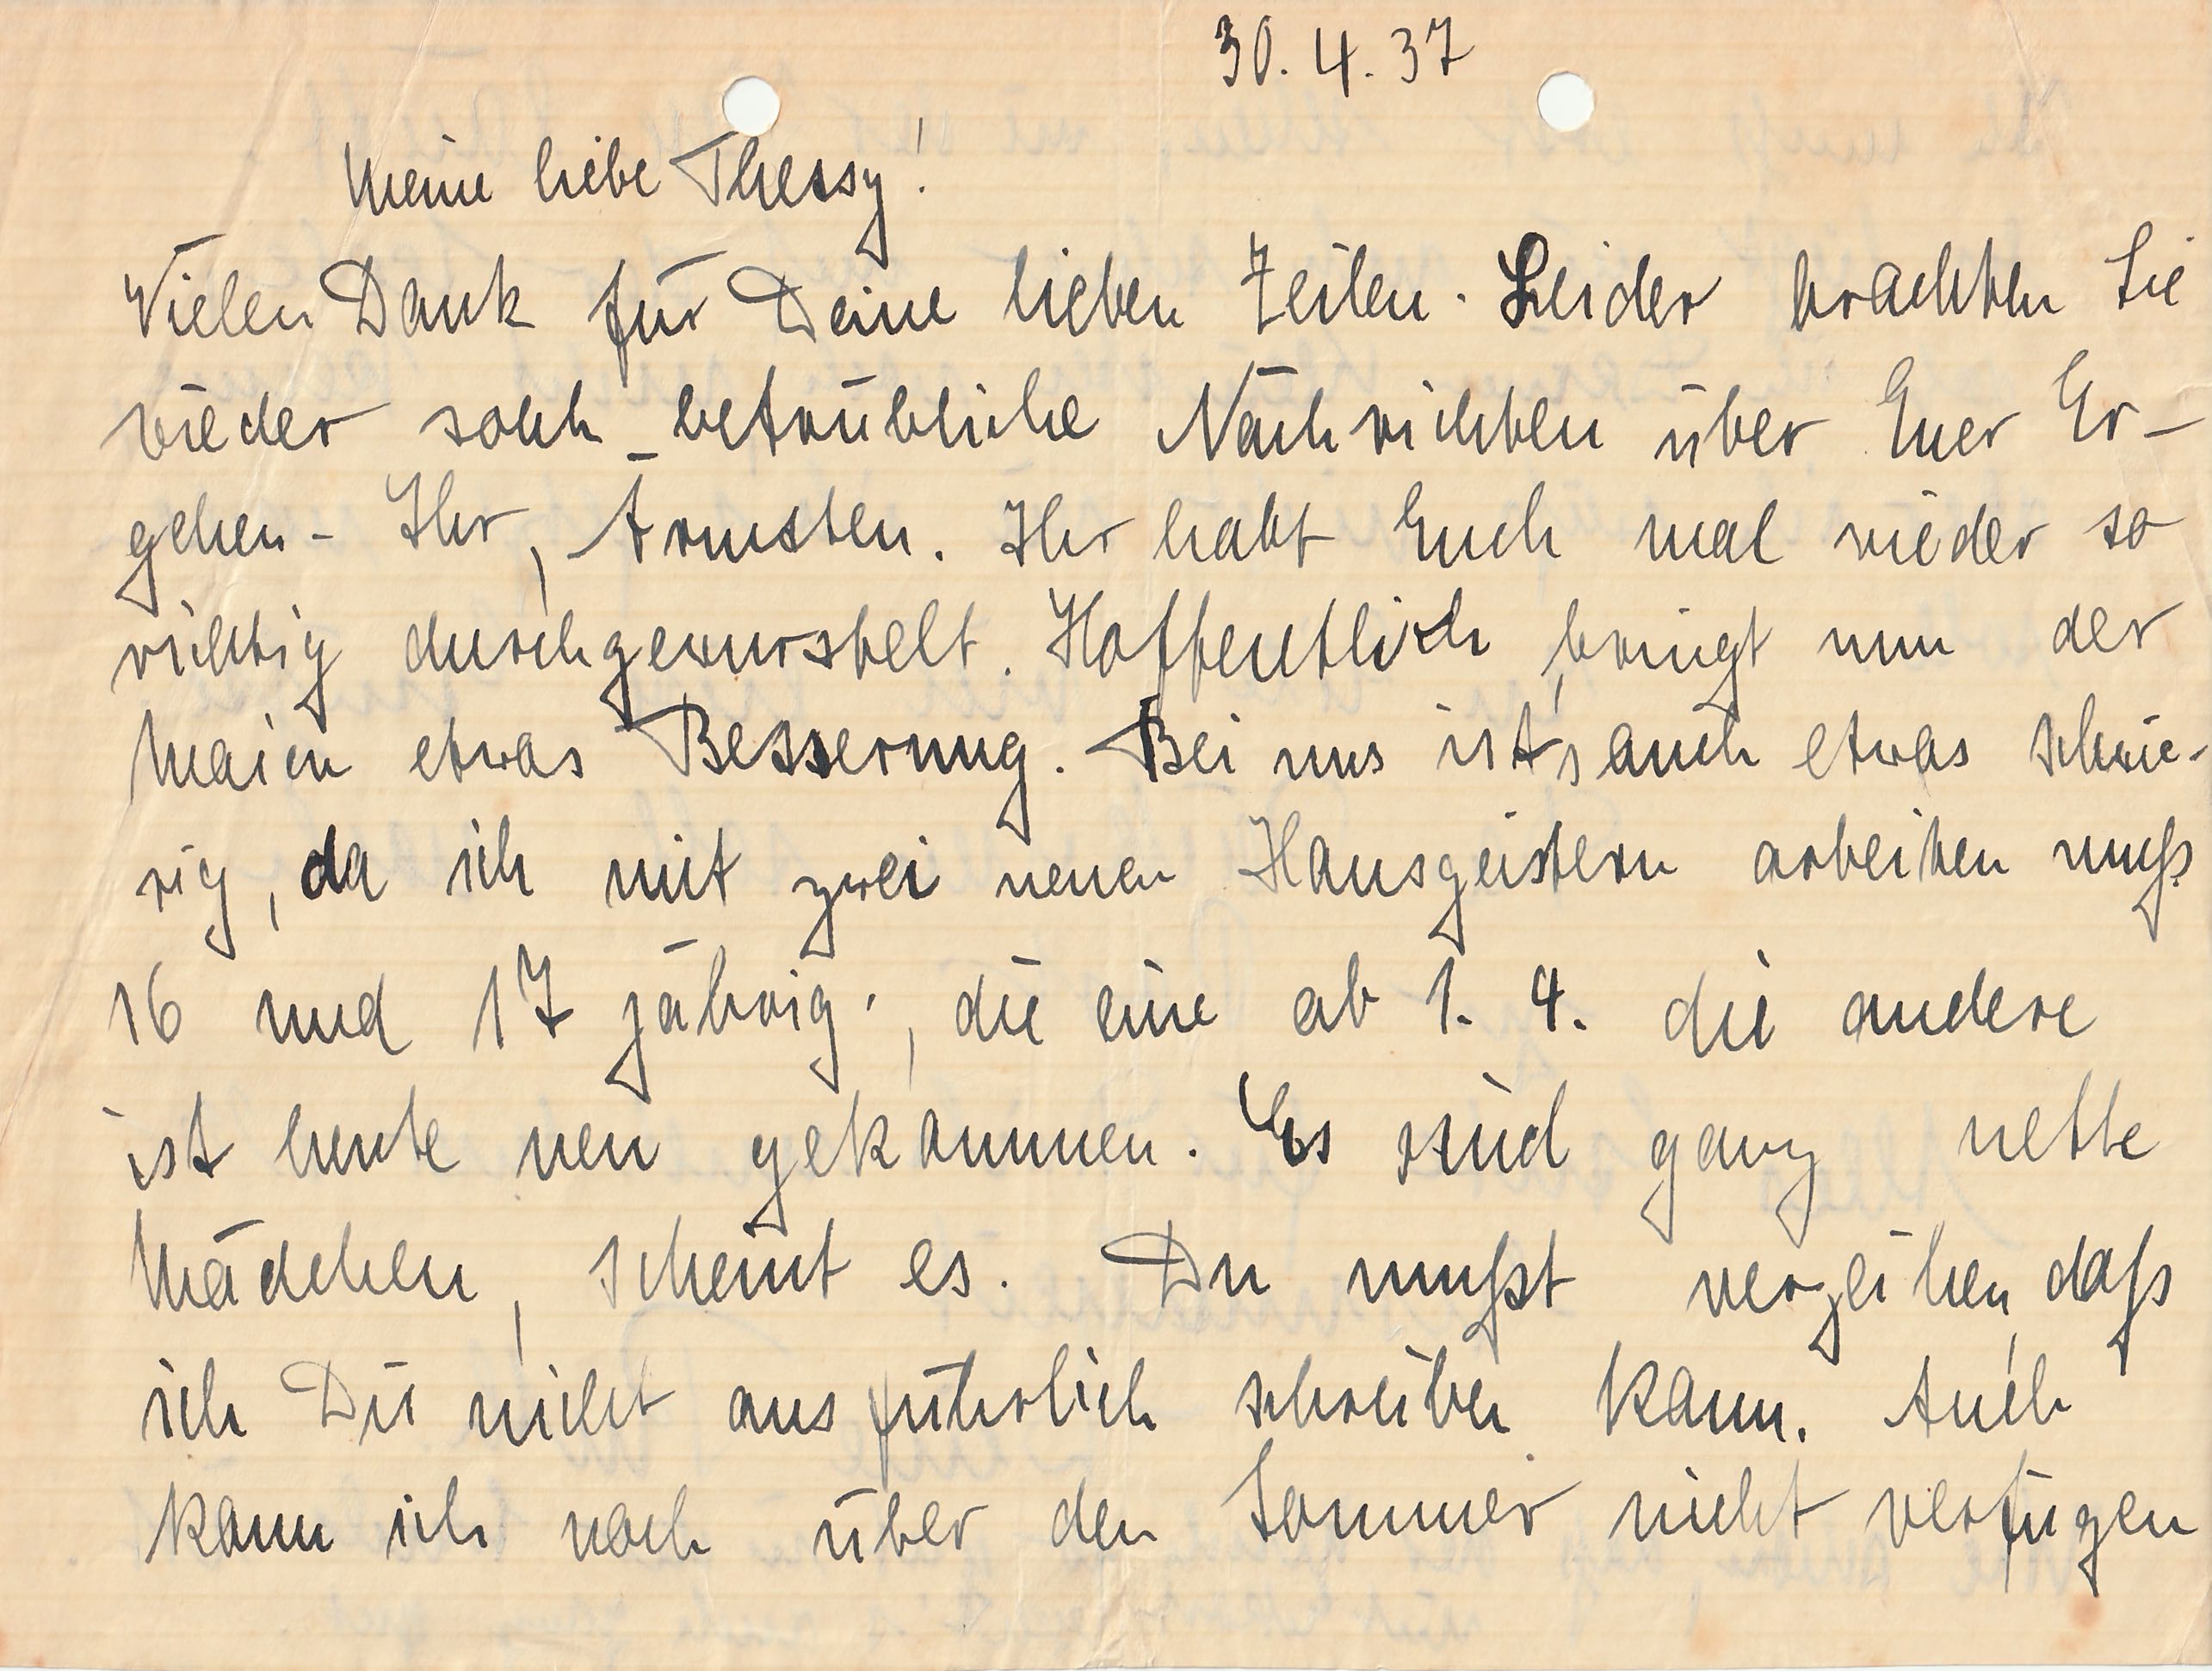 30. 4. 37
Meine liebe Thessy!
Vielen Dank für Deine lieben Zeilen. Leider brachten Sie
wieder solch betrübliche Nachrichten über Euer Er-
gehen - Ihr, Ärmsten. Ihr habt Euch mal wieder so
richtig durchgewurstelt. Hoffentlich bringt nun der
Maien etwas Besserung. Bei uns ist's auch etwas schwie-
rig, da ich mit zwei neuen Hausgeistern arbeiten muß
16 und 17 jährig, die eine ab 1. 4. die andere
ist heute neu gekommen. Es sind ganz nette
Mädchen, scheint es. Du mußt verzeihen, daß
ich Dir nicht ausführlich schreiben kann. Auch
kann ich noch über den Sommer nicht verfügen